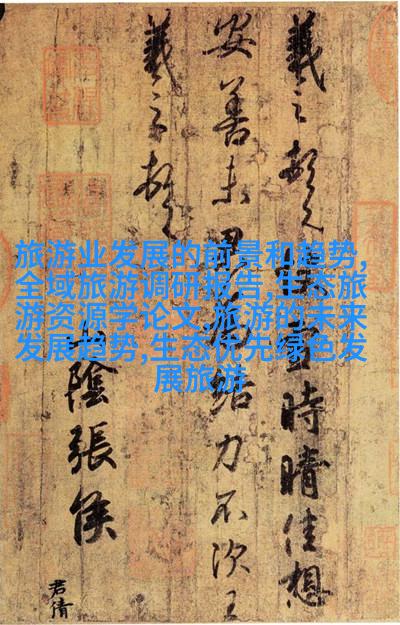 旅游业发展的前景和趋势,
全域旅游调研报告,生态旅
游资源学论文,旅游的未来
发展趋势,生态优先绿色发
展旅游
羲之頓首快雪時晴佳想
安善未果為結力不次王
羲之頓首
山陰張侯
君倩